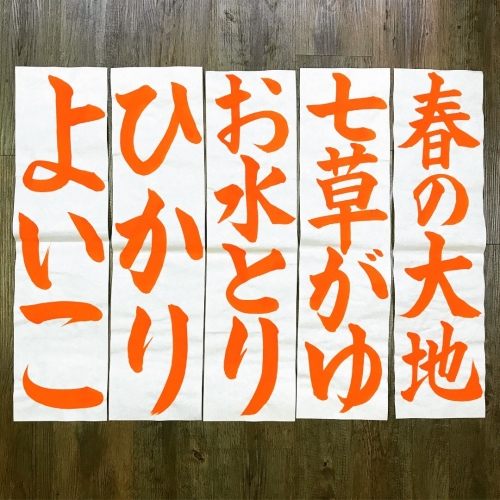 春の大地
七草がゆ
お水とり
ひかり
よいこ